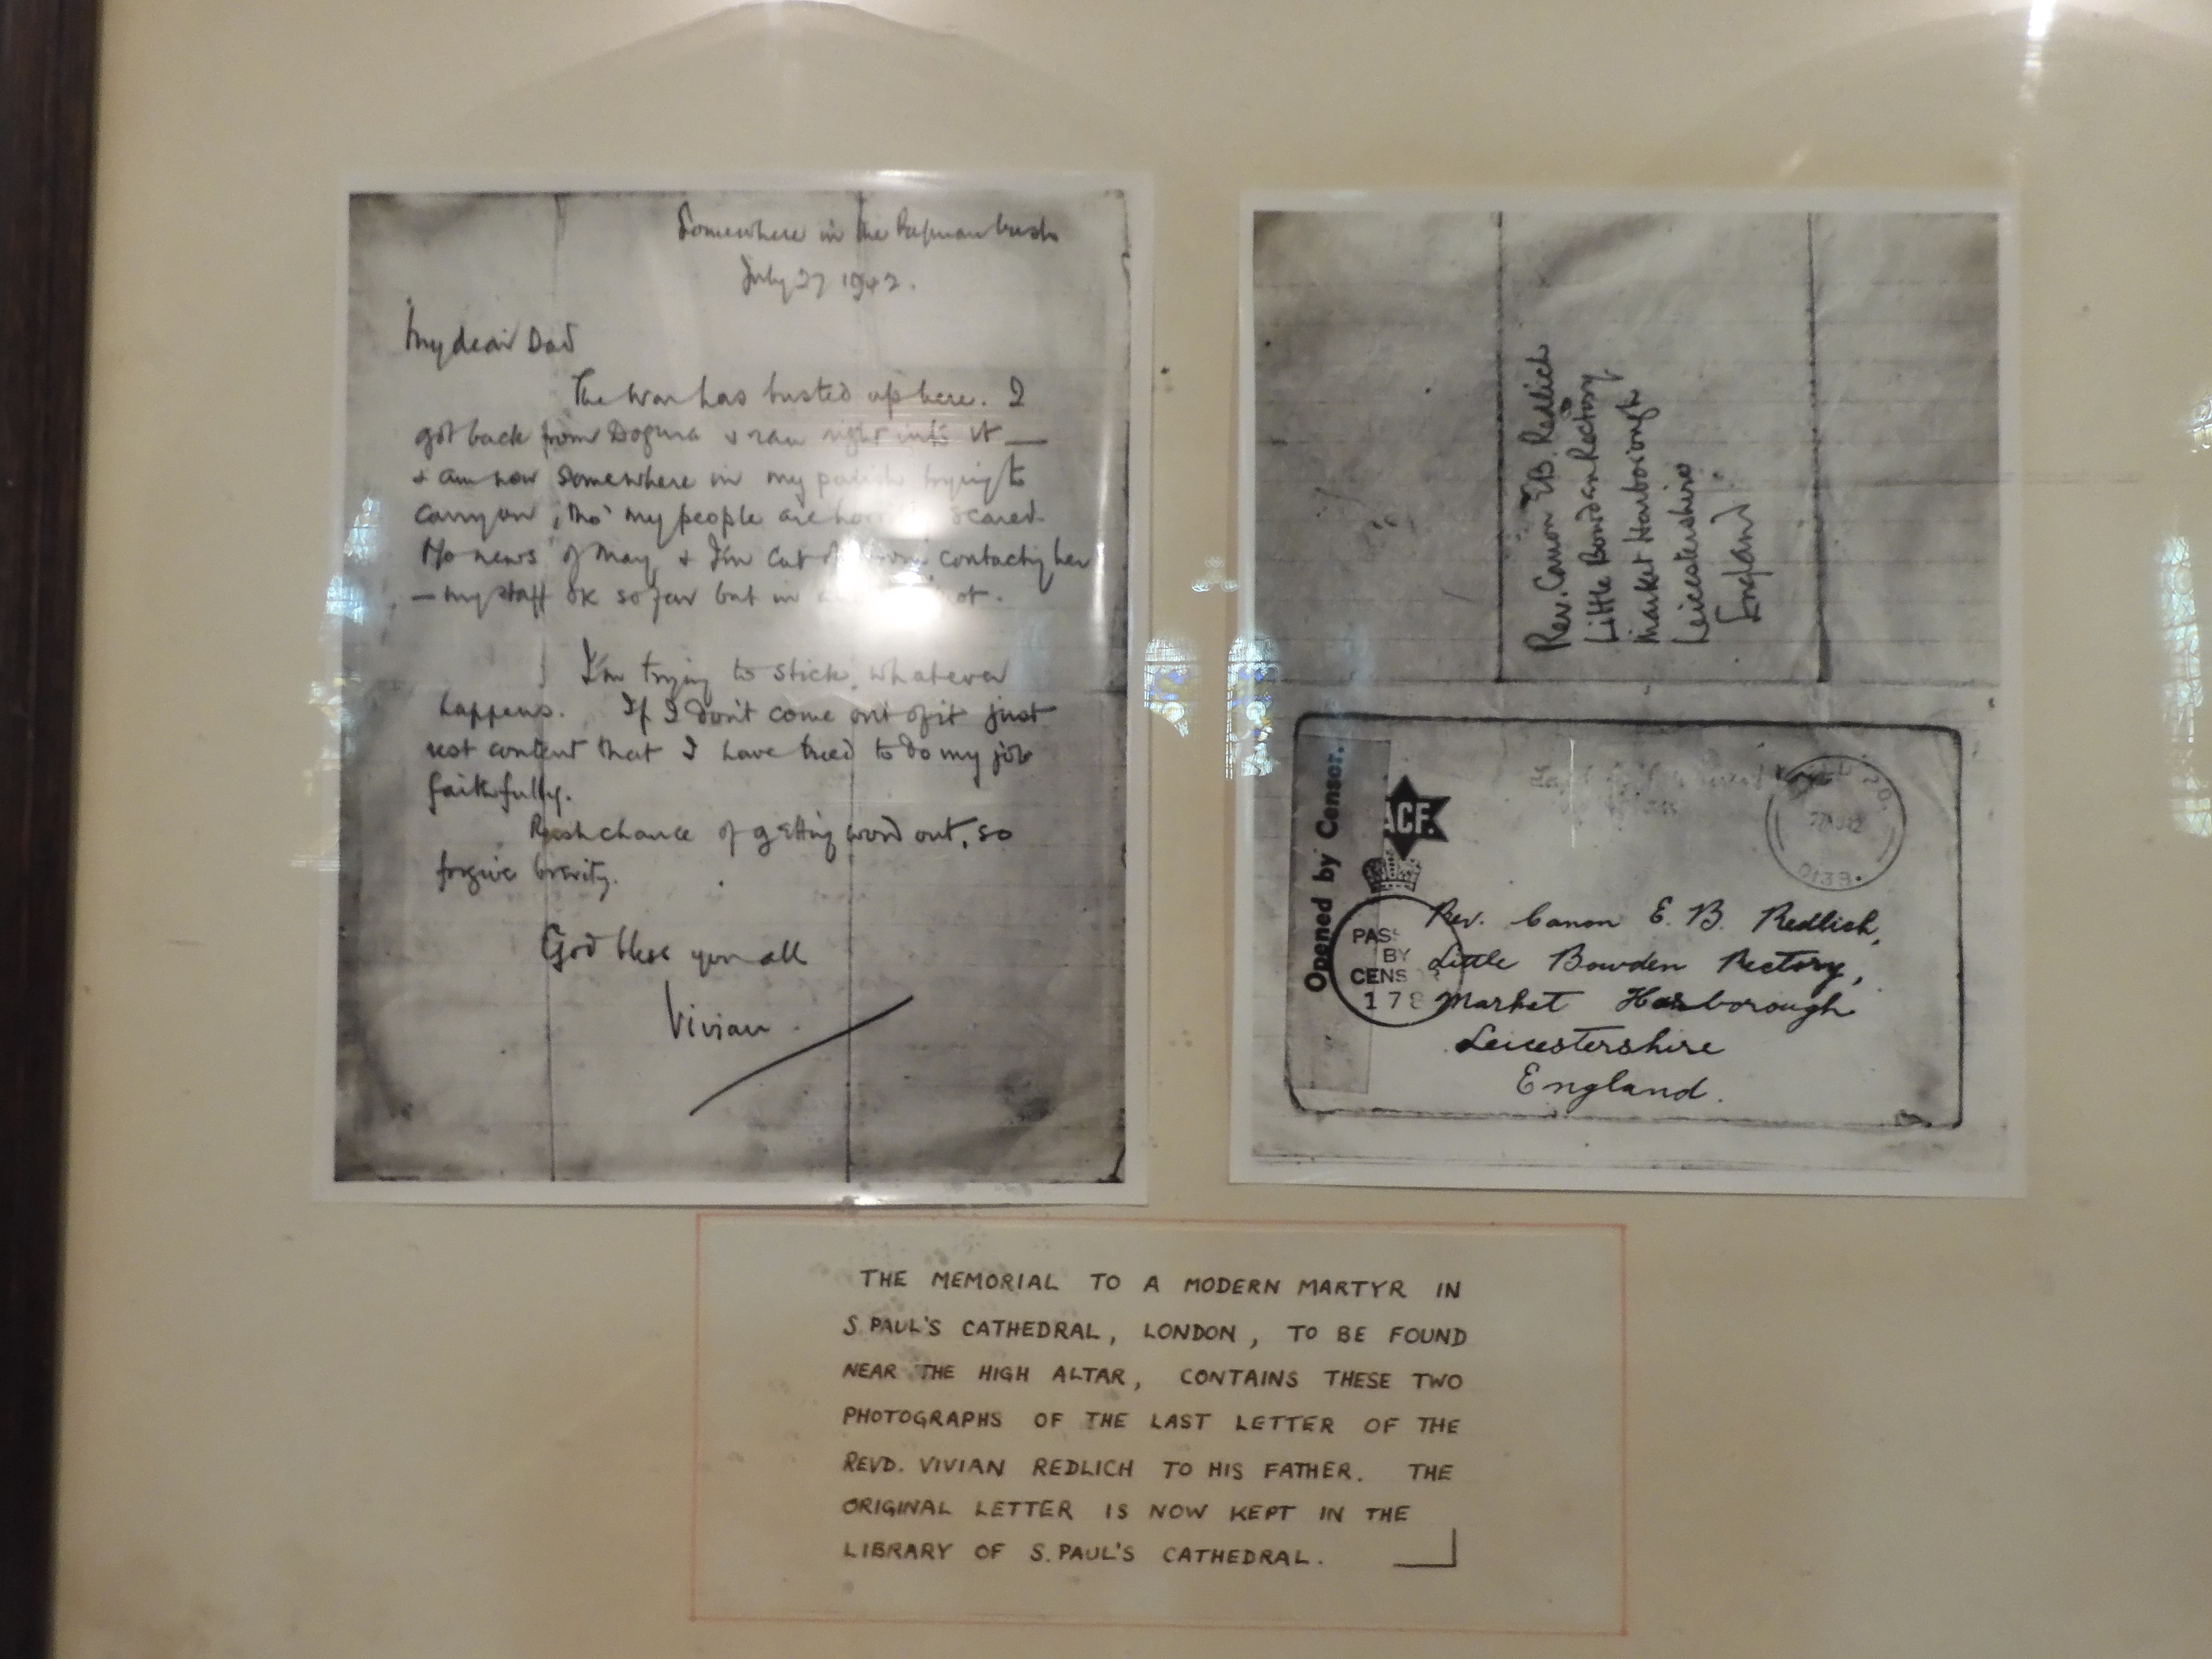 Somewhere in the Papuan bush
July 27 1942.
My dear Dad
The war has busted up here. I
got back from Dogura & ran right into it —
& am now somewhere in my parish trying to
carry on, tho' my people are scared.
No news of May, & I'm cut off from contacting her
— my staff OK so far but in
I'm trying to stick whatever
happens. If I don't come out of it just
rest content that I have tried to do my job
faithfully.
Rush chance of getting word out, so
forgive brevity.
God bless you all
Vivian
Rev. Canon E.B. Redlich
Little Bowden Rectory
Market Harborough
Leicestershire
England
Opened by Censor.
ACF.
PASS
BY
CENS
178
Rev. Canon E. B. Redlich,
Little Bowden Rectory,
Market Harborough
Leicestershire
England.
THE MEMORIAL TO A MODERN MARTYR IN
S. PAUL'S CATHEDRAL, LONDON, TO BE FOUND
NEAR THE HIGH ALTAR, CONTAINS THESE TWO
PHOTOGRAPHS OF THE LAST LETTER OF THE
REVD. VIVIAN REDLICH TO HIS FATHER. THE
ORIGINAL LETTER IS NOW KEPT IN THE
LIBRARY OF S. PAUL'S CATHEDRAL.